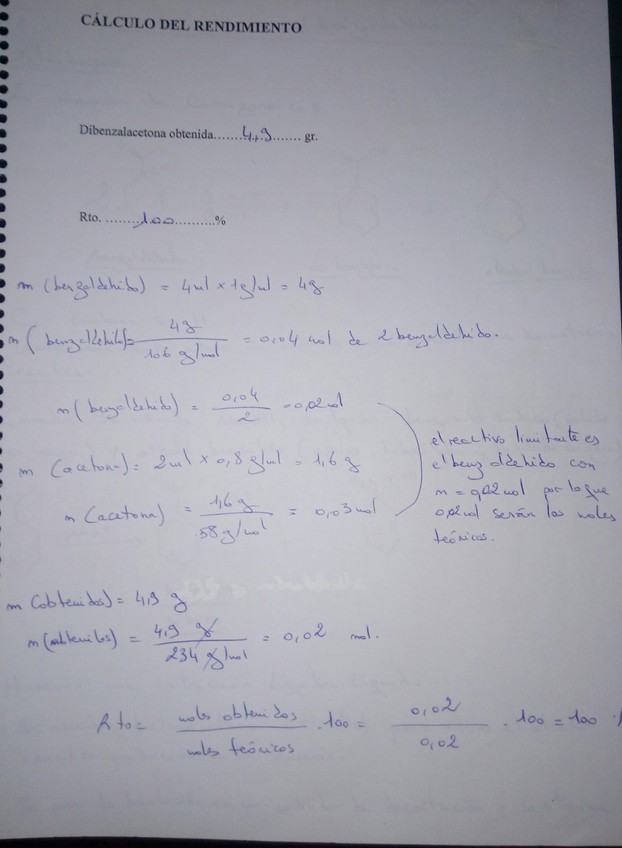 CÁLCULO DEL RENDIMIENTO
Dibenzalacetona obtenida.......4,9....... gr.
Rto. .........100..........%
m (benzaldehido) = 4ml x 1g/ml = 4g
n (benzaldehito)= 4g / 106 g/mol = 0,04 mol de 2 benzaldehido.
n (benzaldehido) = 0,04 / 2 = 0,02mol
m (acetona) = 2ml x 0,8 g/ml = 1,6 g
n (acetona) = 1,6 g / 58 g/mol = 0,03 mol
el reactivo limitante es
el benzaldehido con
n = 0,02 mol por lo que
0,02mol serán los moles
teóricos.
m (obtenidos) = 4,9 g
n (obtenidos) = 4,9 g / 234 g/mol = 0,02 mol.
Rto = moles obtenidos / moles teóricos . 100 = 0,02 / 0,02 . 100 = 100